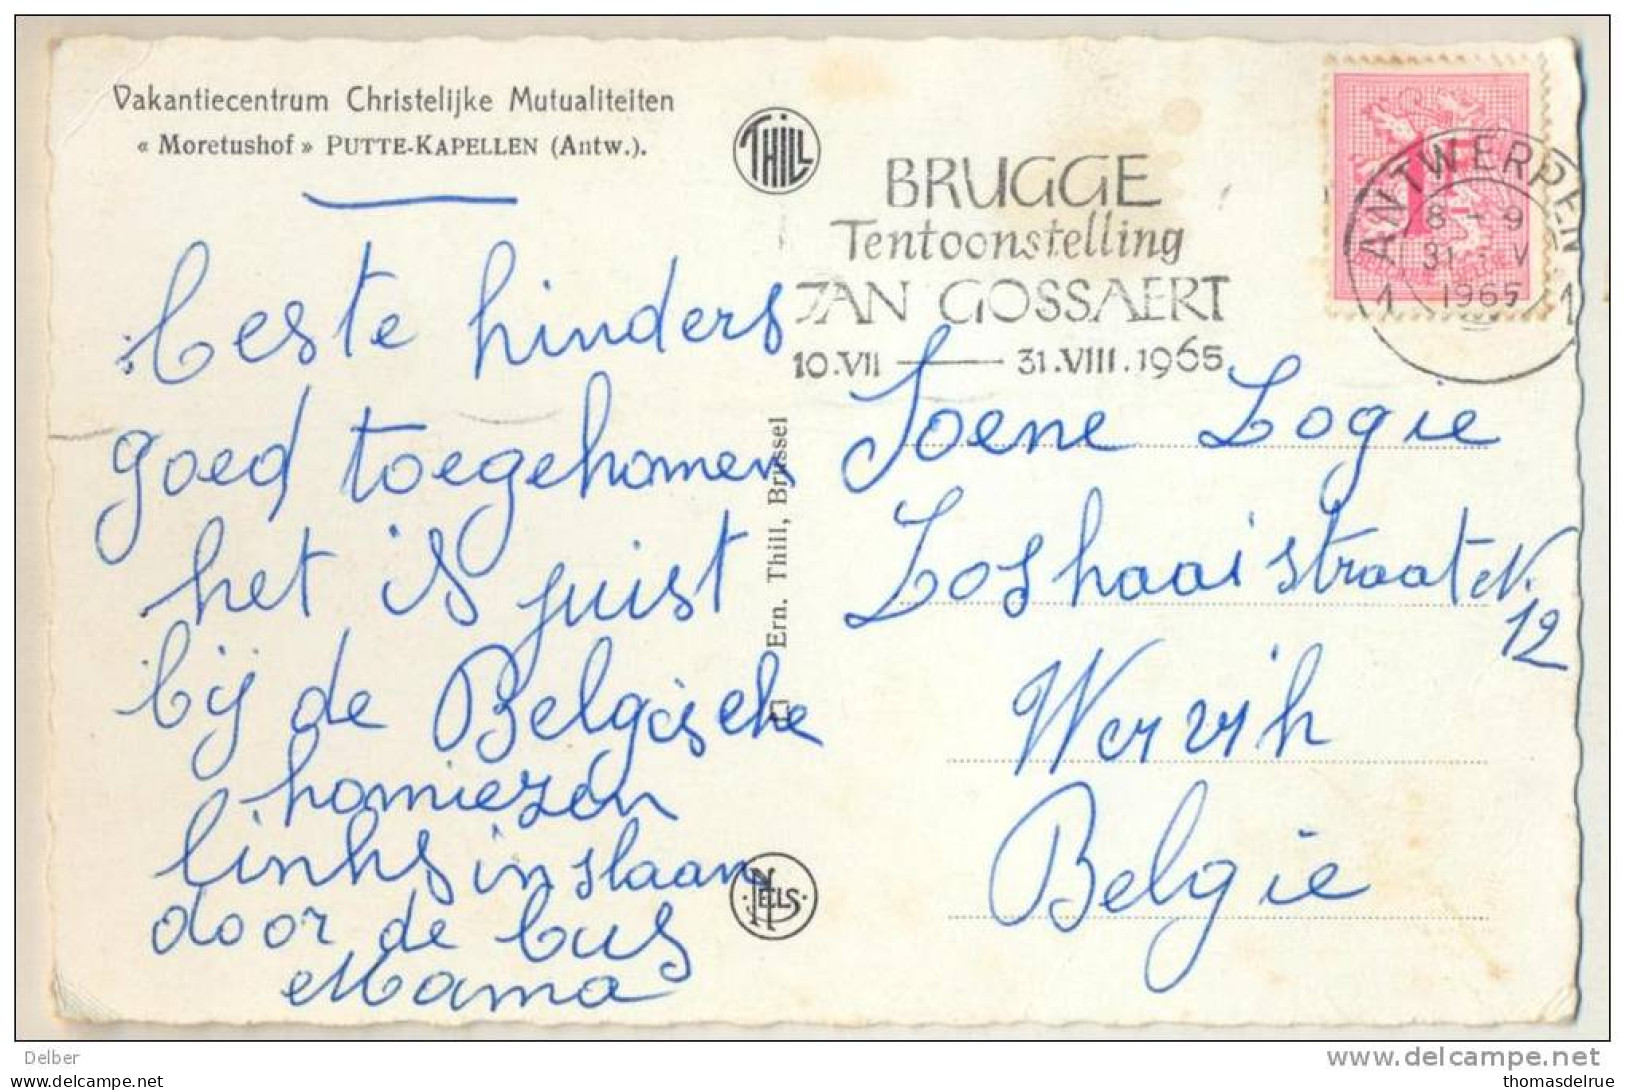 Vakantiecentrum Christelijke Mutualiteiten
« Moretushof » PUTTE-KAPELLEN (Antw.).
THILL
BRUGGE
Tentoonstelling
JAN GOSSAERT
10.VII — 31.VIII.1965
ANTWERPEN
8 - 9
31 - V
1965
1 1
beste kinders
goed toegekomen
het is juist
bij de Belgische
komiezen
links inslaan
door de bus
Mama
Ern. Thill, Brussel
NELS
Soene Logie
Loskaaistraat N.
12
Wervik
Belgie
Delber
www.delcampe.net
thomasdelrue